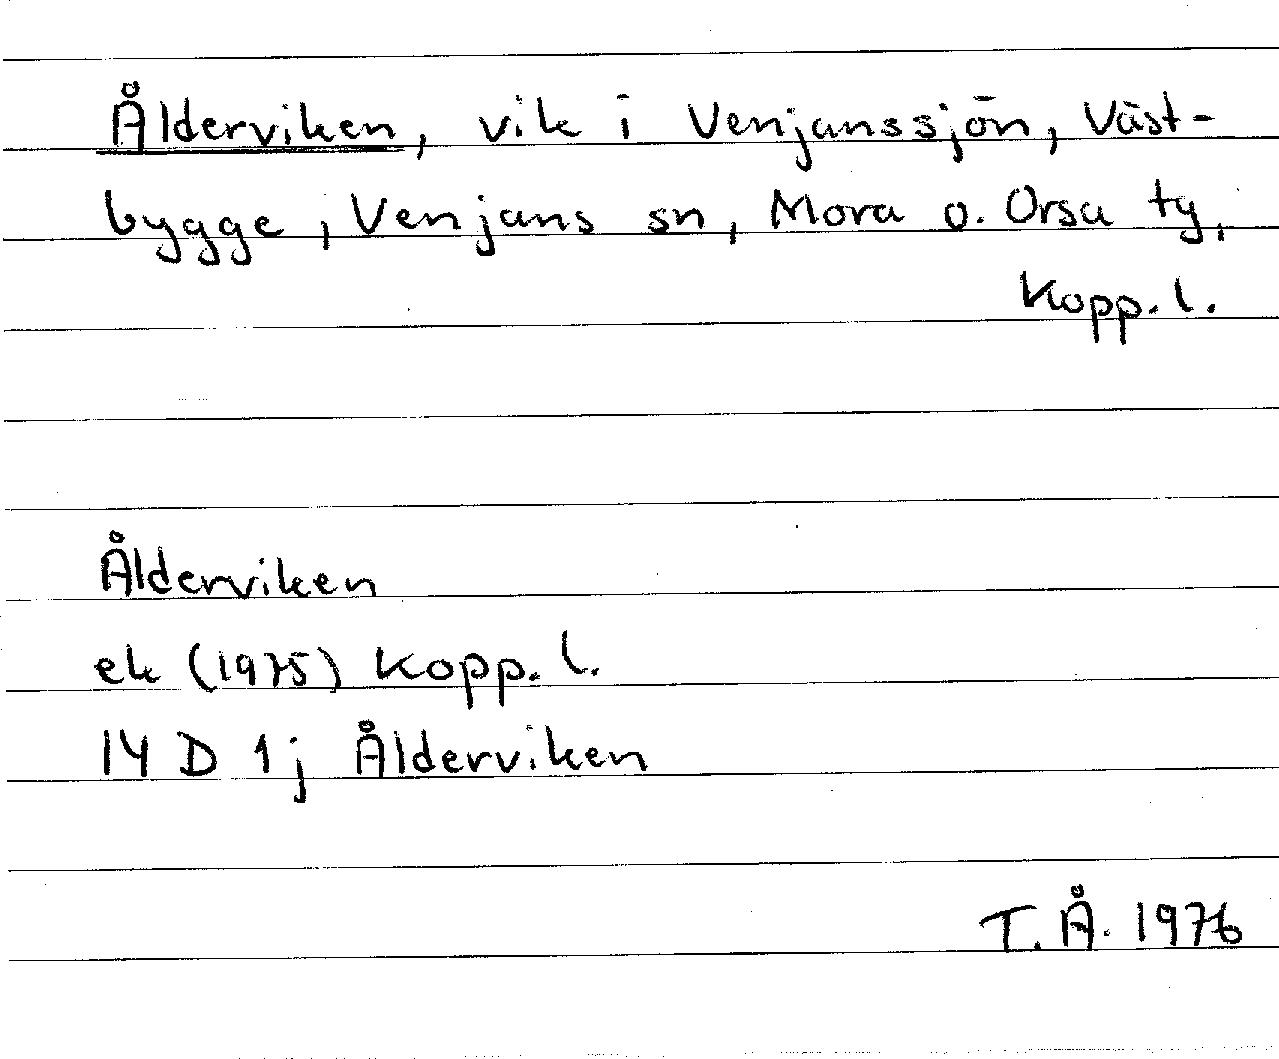 Ålderviken, vik i Venjanssjön, Väst-
bygge, Venjans sn, Mora o. Orsa tg,
Kopp. l.
Ålderviken
ek (1975) Kopp. l.
14 D 1j Ålderviken
T. Å. 1976